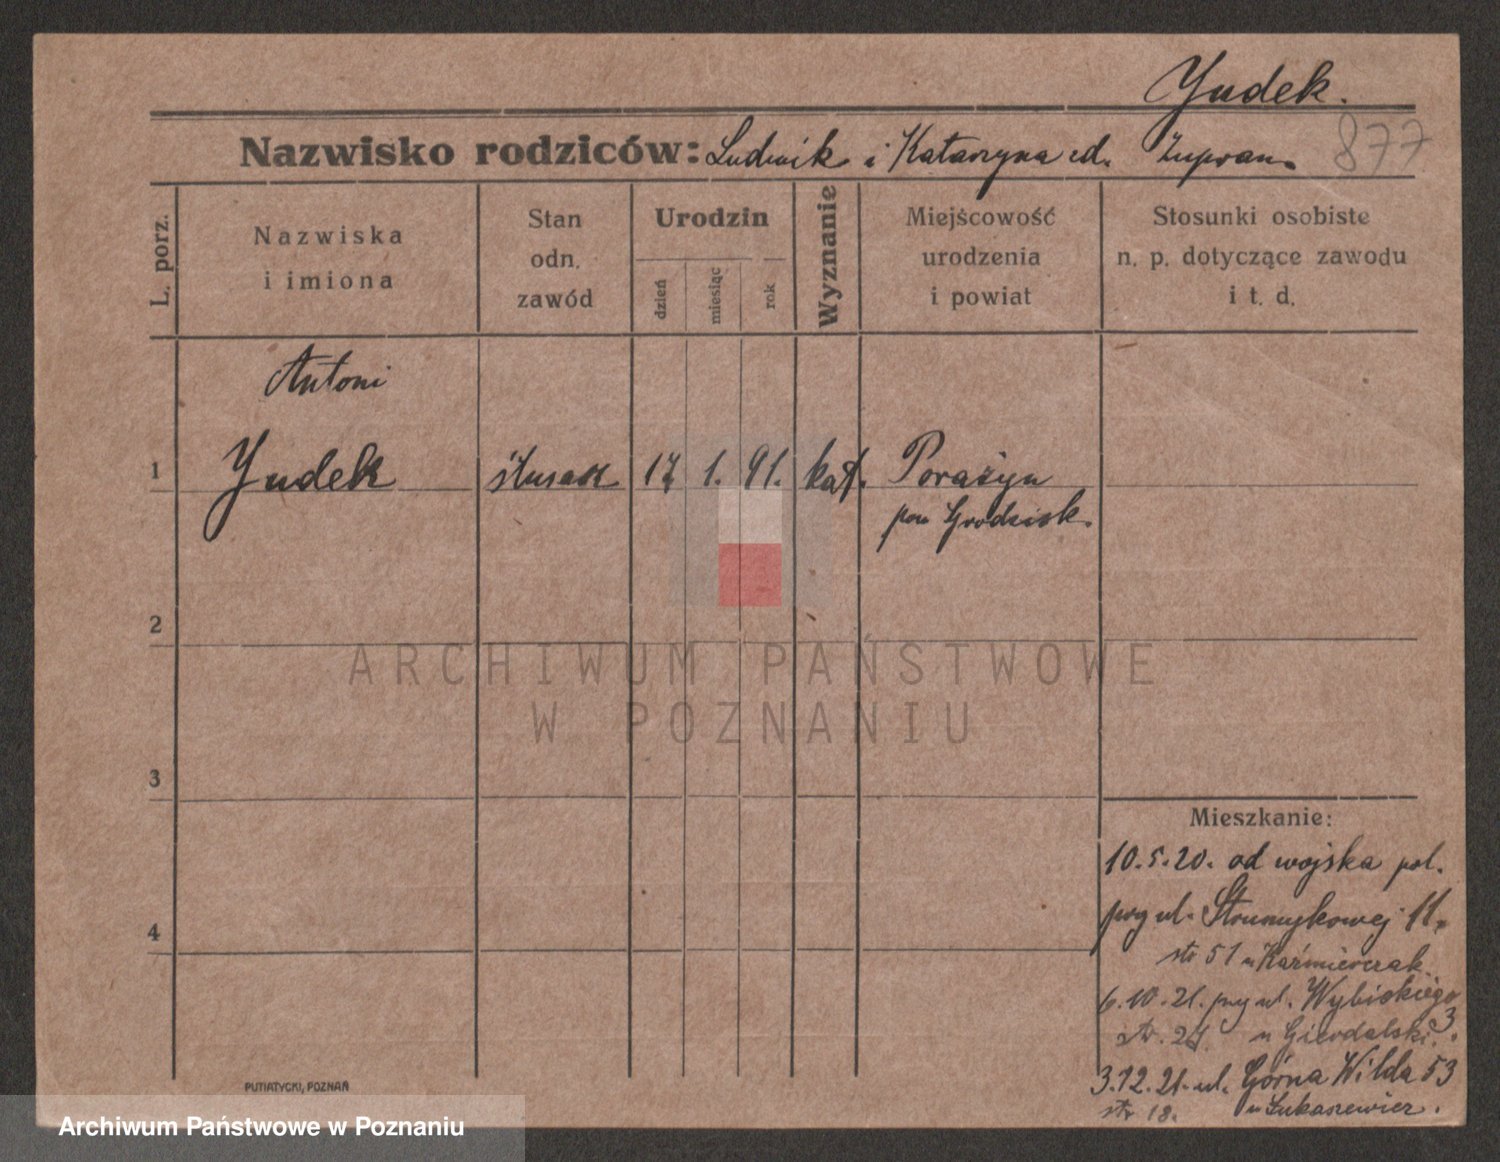 Yudek.
877
Nazwisko rodziców: Ludwik i Katarzyna zd. Żupran.
L. porz.
Nazwiska
i imiona
Stan
odn.
zawód
Urodzin
dzień
miesiąc
rok
Wyznanie
Miejscowość
urodzenia
i powiat
Stosunki osobiste
n. p. dotyczące zawodu
i t. d.
Antoni
1 Yudek ślusarz 17 1. 91. kat. Porażyn
pow Grodzisk.
2
ARCHIWUM PAŃSTWOWE
W POZNANIU
3
Mieszkanie:
10.5.20. od wojska pol.
przy ul. Strumykowej 11.
4
str 51 u Kaźmierczak.
6.10.21. przy ul. Wybickiego 3
str. 27. u Gierdalski.
3.12.21. ul. Górna Wilda 53
str 18. u Łukaszewicz.
PUTIATYCKI, POZNAŃ
Archiwum Państwowe w Poznaniu